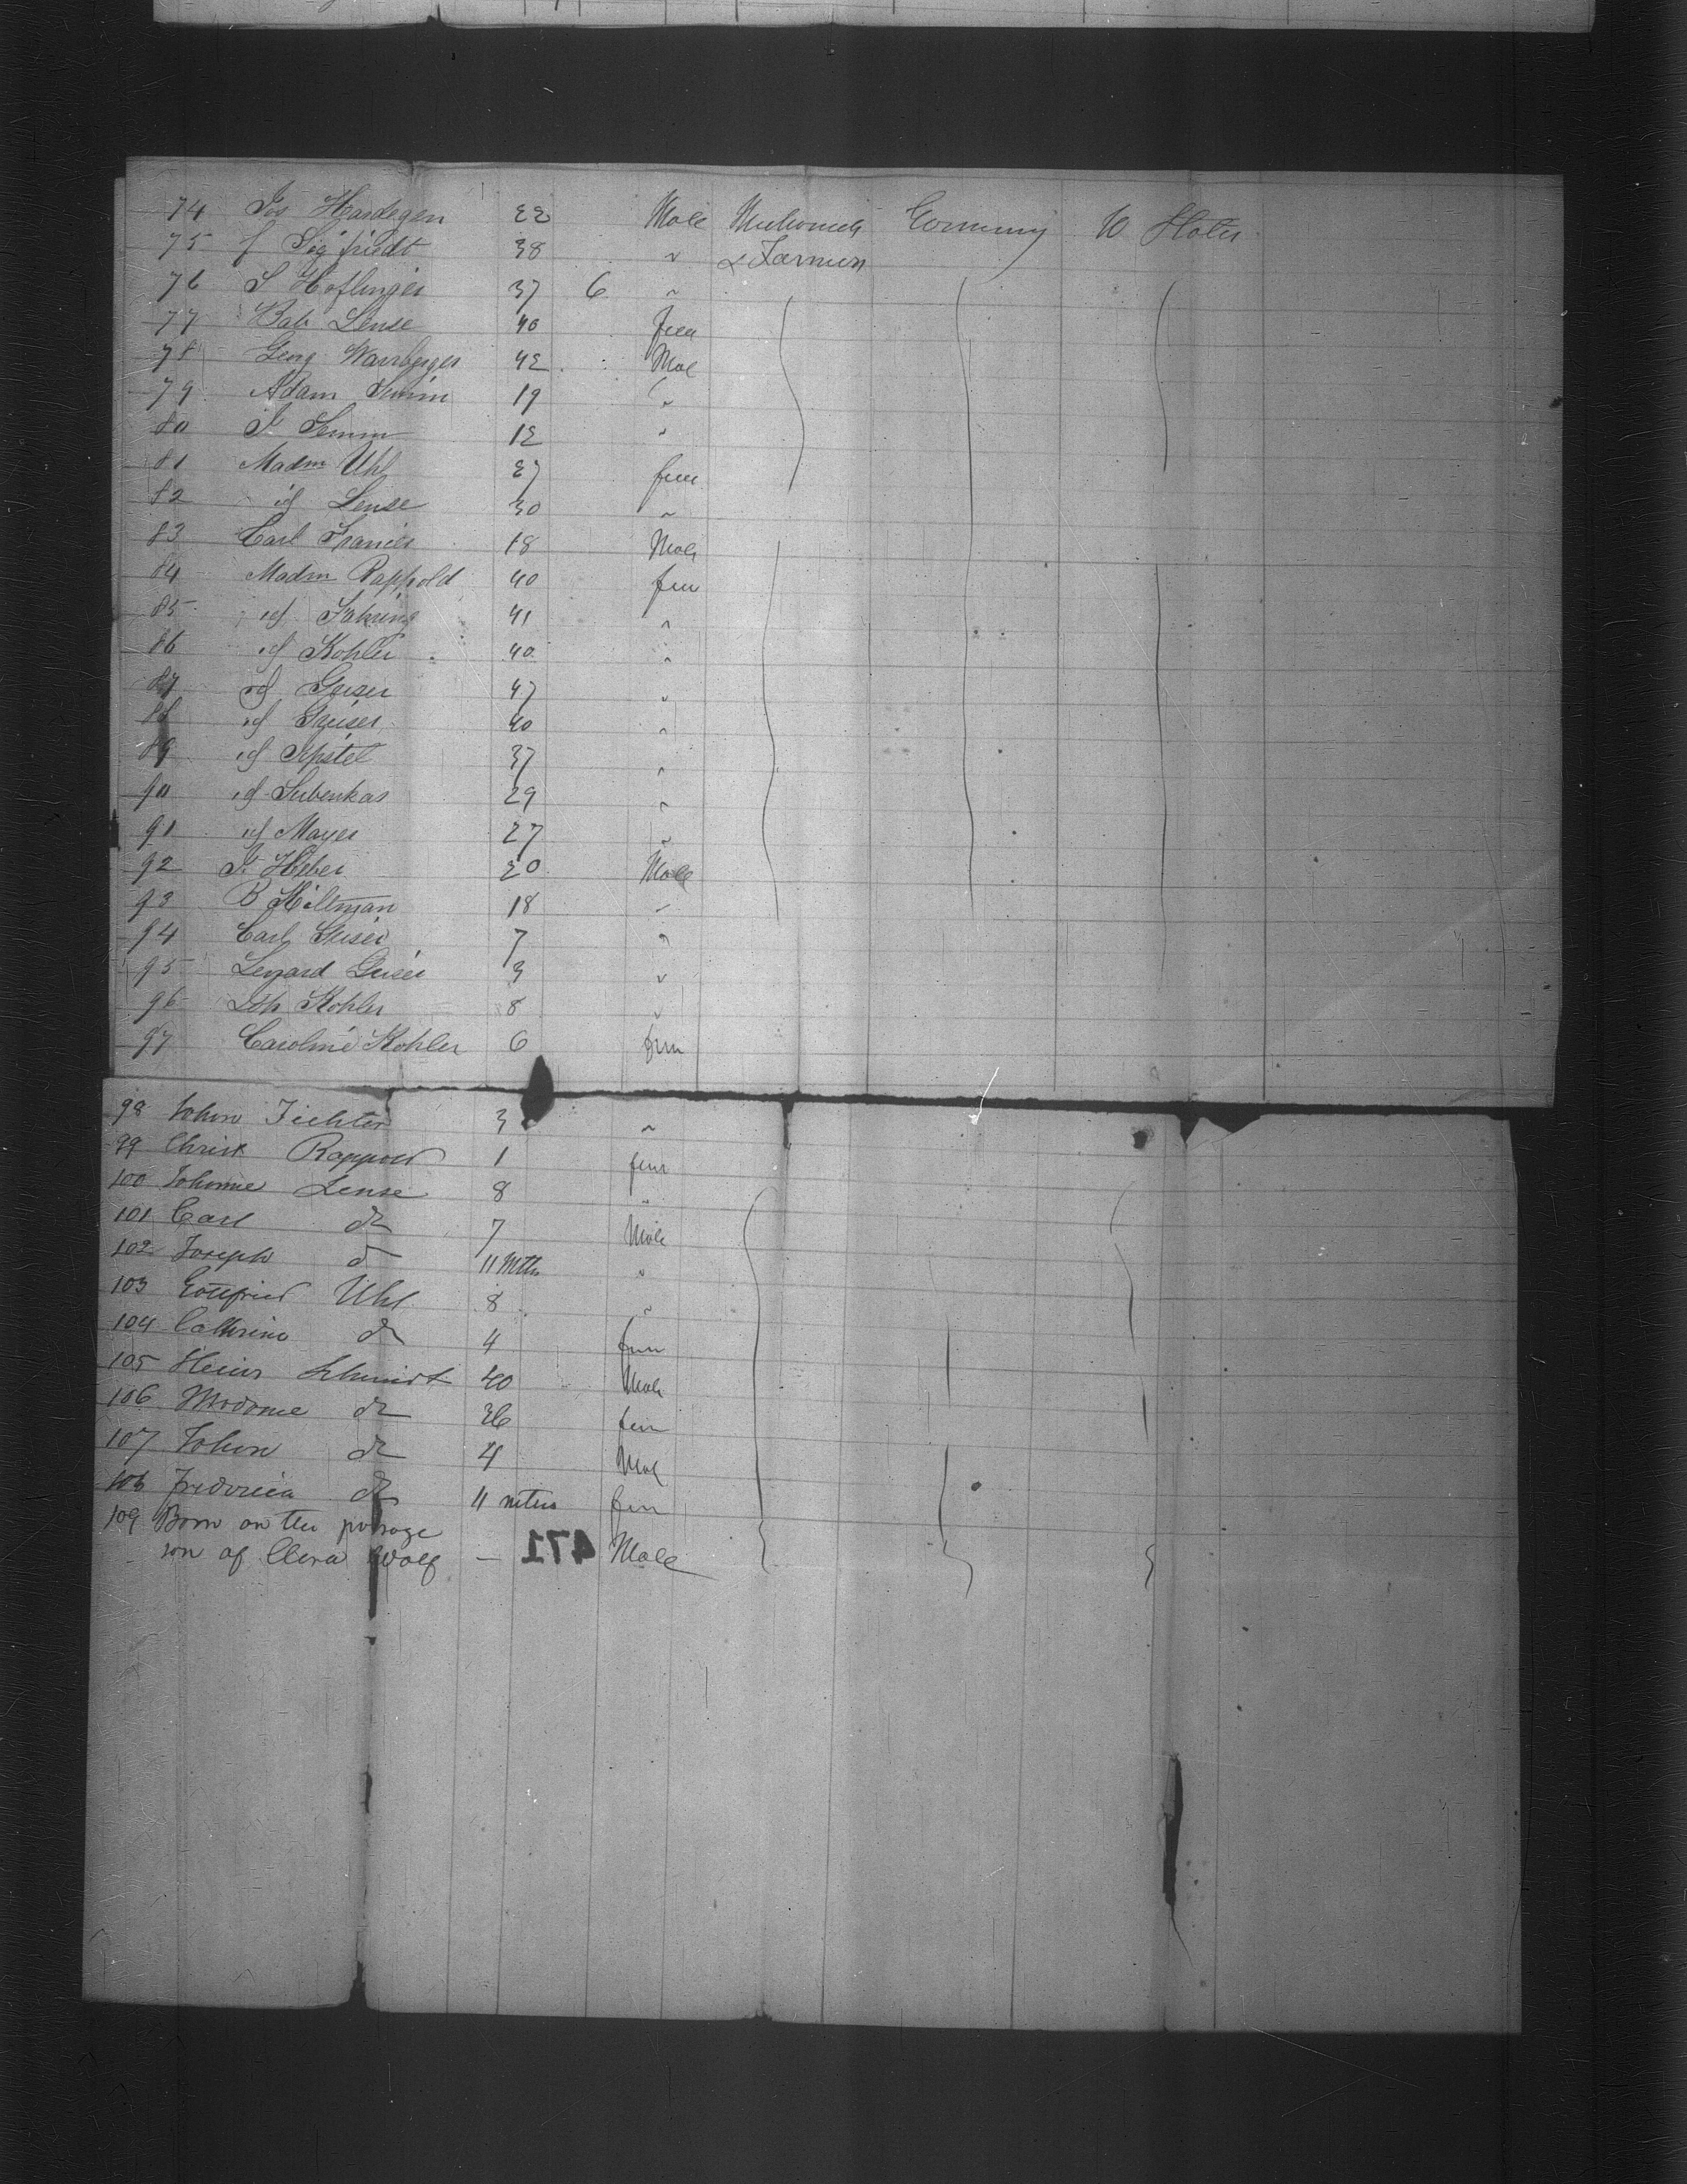 74 Jos Hardegen 22 Male Mechanick Germany U States
75 J Sigfriedt 38 " & Farmers
76 S Hoflinger 37 6 "
77 Bab Lense 40 fem
78 Georg 42 Mal
79 Adam 19 "
80 12 "
81 Madm Uhl 27 fem
82 id Lense 30 "
83 Carl 18 Male
84 Madm Rappold 40 fem
85 id 41 "
86 id Kohler 40 "
87 id Geiser 47 "
88 id Geiser 40 "
89 id 37 "
90 id 29 "
91 id Mayer 27 "
92 Heber 20 Male
93 B Hiltman 18 "
94 Carl Geiser 7 "
95 Leonard Geiser 3 "
96 Kohler 8 "
97 Caroline Kohler 6 fem
98 John Fichter 3 "
99 Christ Rappold 1 fem
100 Johanne Lense 8 "
101 Carl do 7 Male
102 Joseph do 11 Mths "
103 Gottfried Uhl 8 "
104 Cathrine do 4 fem
105 Heinr Schmidt 40 Male
106 Madame do 36 fem
107 John do 4 Mal
108 Frederica do 11 mths fem
109 Born on the passage
son of Clera Wolf — 471 Male